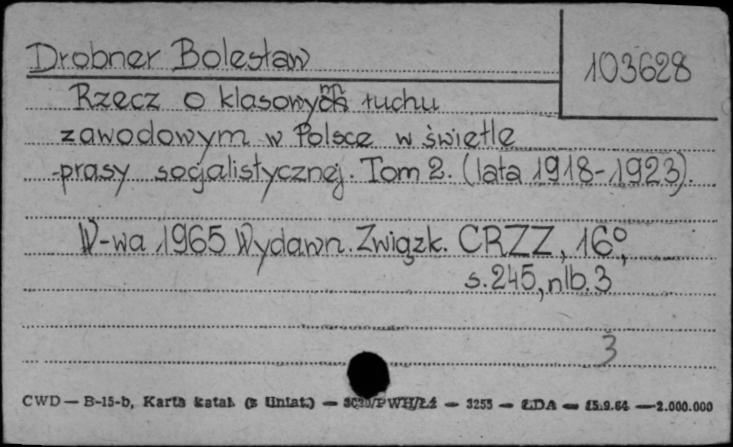 Drobner Bolesław
103628
Rzecz o klasowym ruchu
zawodowym w Polsce w świetle
prasy socjalistycznej. Tom 2. (lata 1918-1923).
W-wa 1965 Wydawn. Związk. CRZZ, 16°,
s. 245, nlb. 3
3
CWD — B-15-b, Karta katal. (z liniat.) — PWH/Łź — 3255 — ŁDA — 15.9.64 — 2.000.000